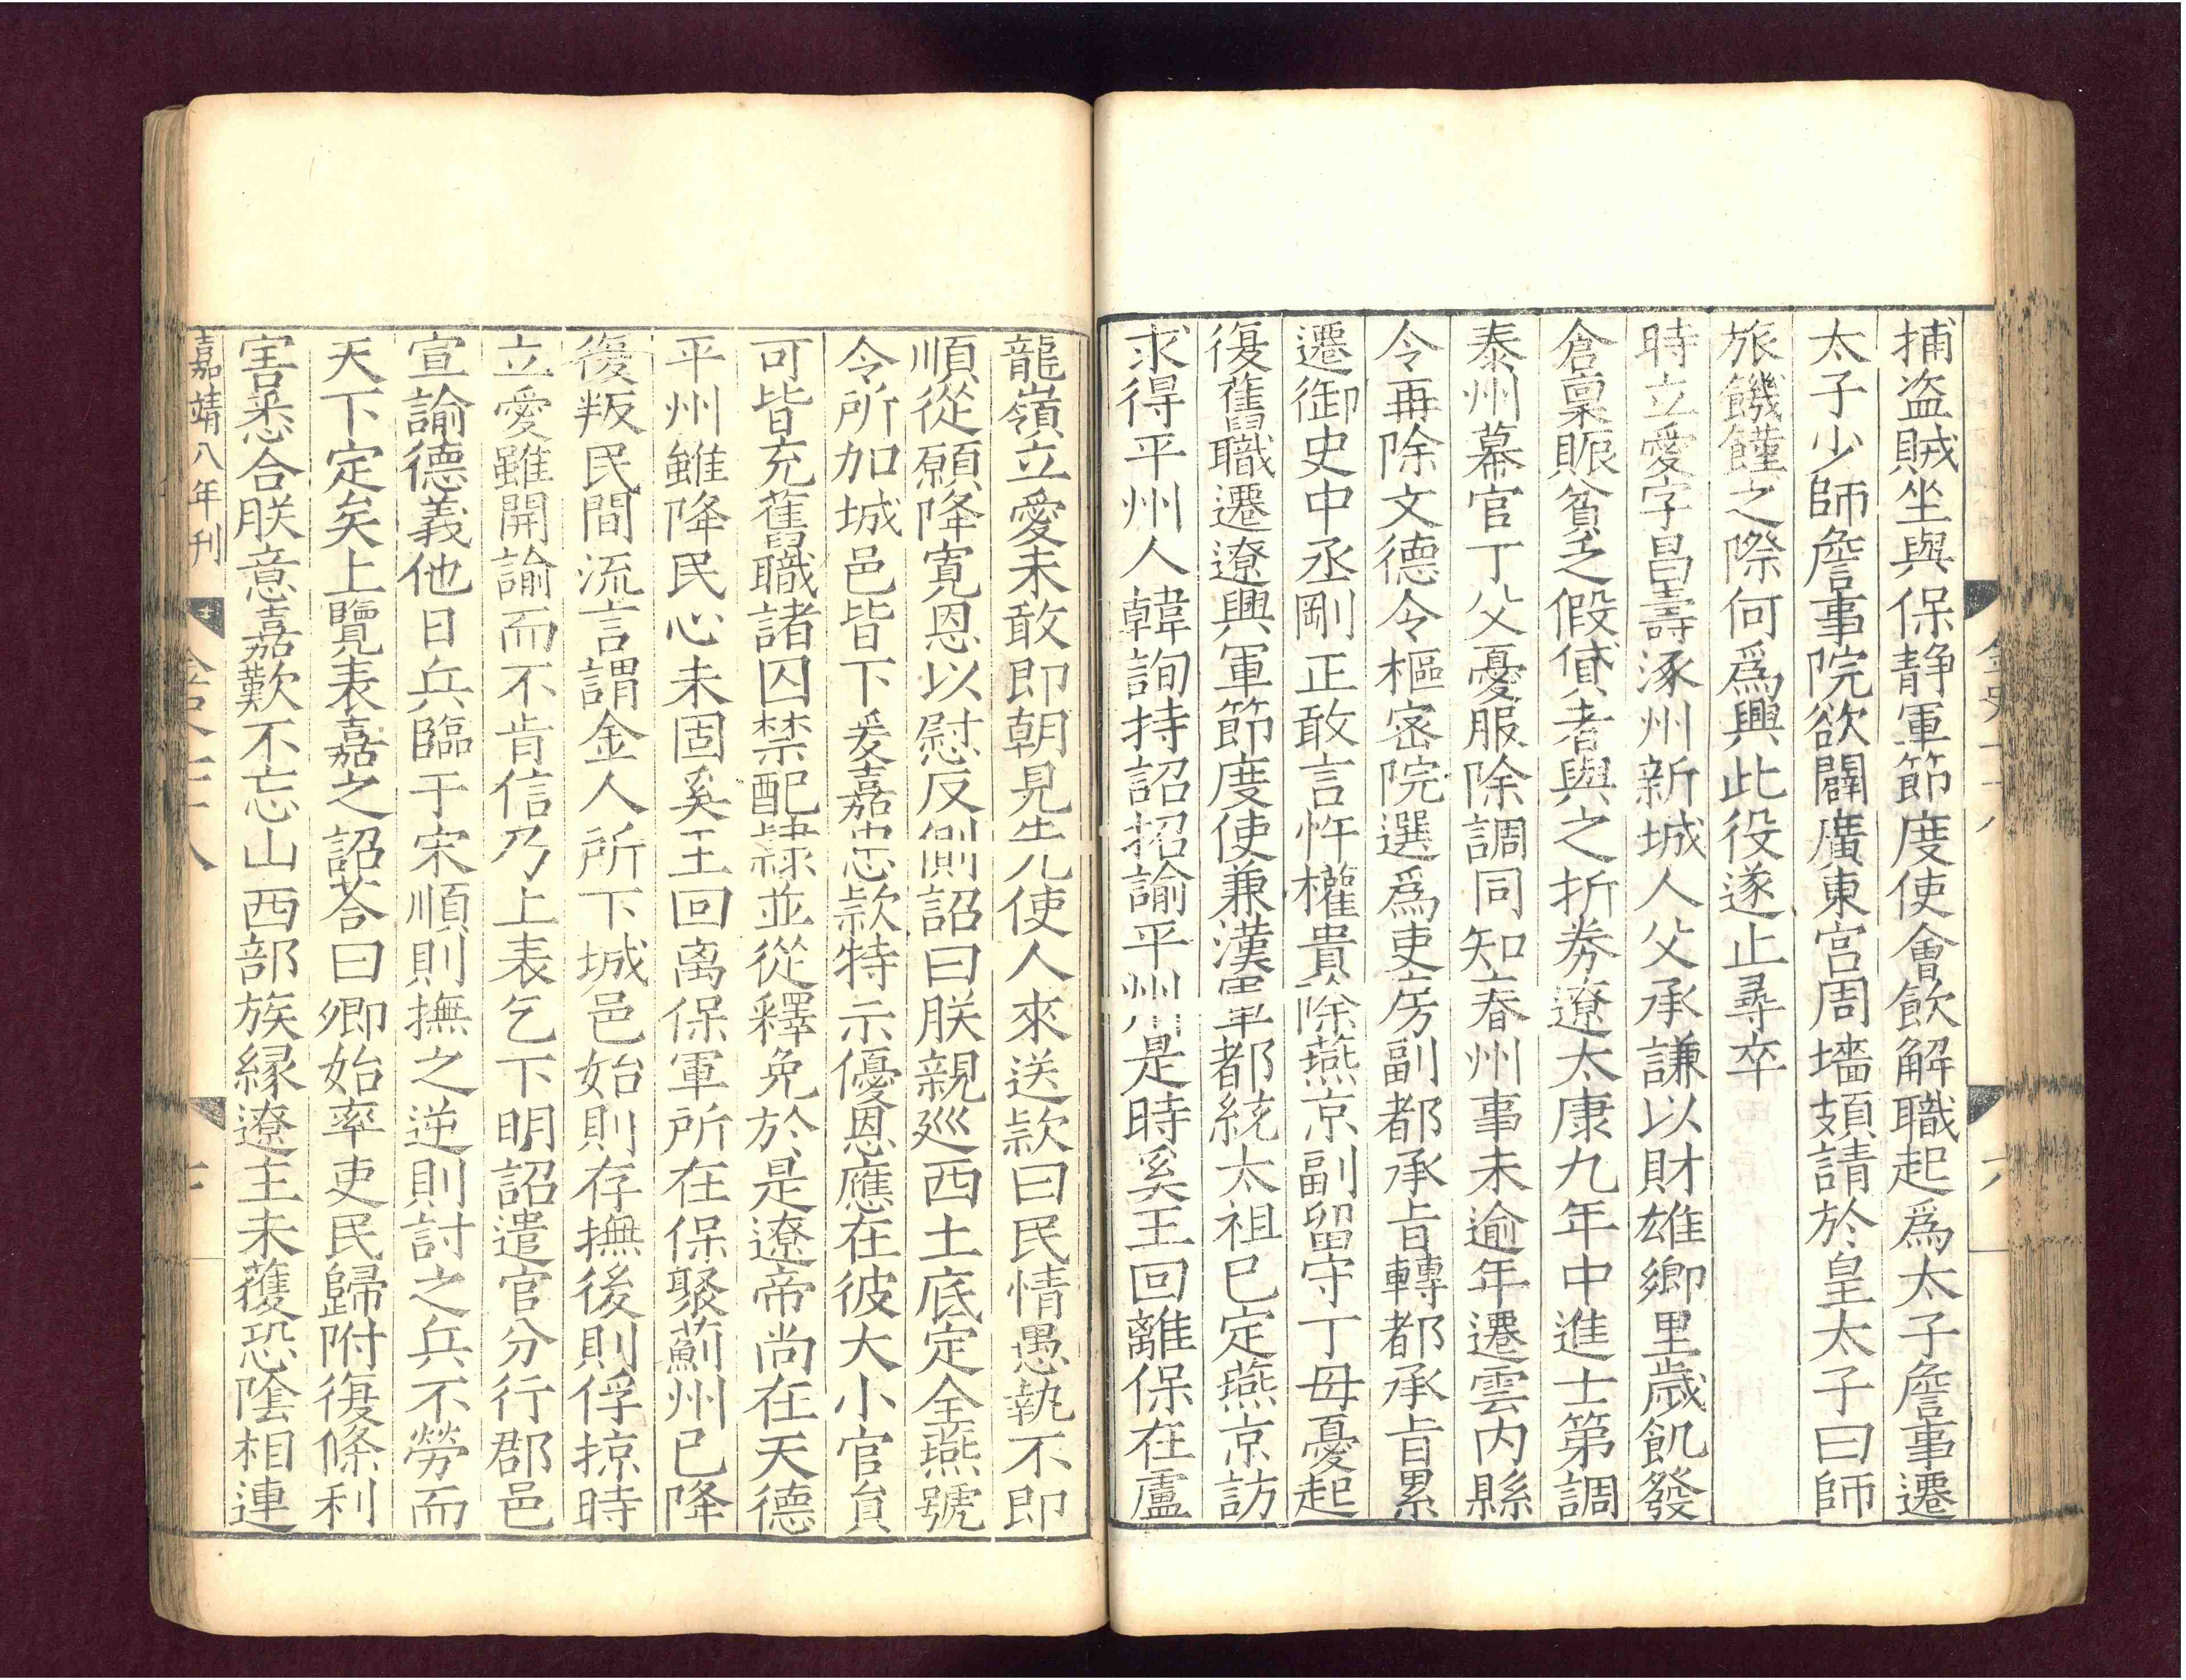 捕盗賊坐與保静軍節度使會飲解職起爲太子詹事遷
太子少師詹事院欲闢廣東宫周墻頍請於皇太子曰師
旅饑饉之際何爲興此役遂止尋卒
時立愛字昌壽涿州新城人父承謙以財雄鄉里歳飢發
倉稟賑貧乏假貸者與之折券遼太康九年中進士第調
泰州幕官丁父憂服除調同知春州事未逾年遷雲内縣
令再除文德令樞宻院選爲吏房副都承㫖轉都承㫖累
遷御史中丞剛正敢言忤權貴除燕京副留守丁毋憂起
復舊職遷遼興軍節度使兼漢軍都統太祖已定燕京訪
求得平州人韓詢持詔招諭平州是時奚王回離保在盧
龍嶺立愛未敢即朝見先使人來送欵曰民情愚執不即
順從願降寛恩以慰反側詔曰朕親巡西土底定全燕號
令所加城邑皆下爰嘉忠欵特示優恩應在彼大小官員
可皆充舊職諸囚禁配隷並從釋免於是遼帝尚在天德
平州雖降民心未固奚王回离保軍所在保聚薊州已降
復叛民間流言謂金人所下城邑始則存撫後則俘掠時
立愛雖開諭而不肯信乃上表乞下明詔遣官分行郡邑
宣諭德義他日兵臨于宋順則撫之逆則討之兵不勞而
天下定矣上覽表嘉之詔荅曰卿始率吏民歸附復條利
害悉合朕意嘉歎不忘山西部族縁遼主未獲恐隂相連
嘉靖八年刋